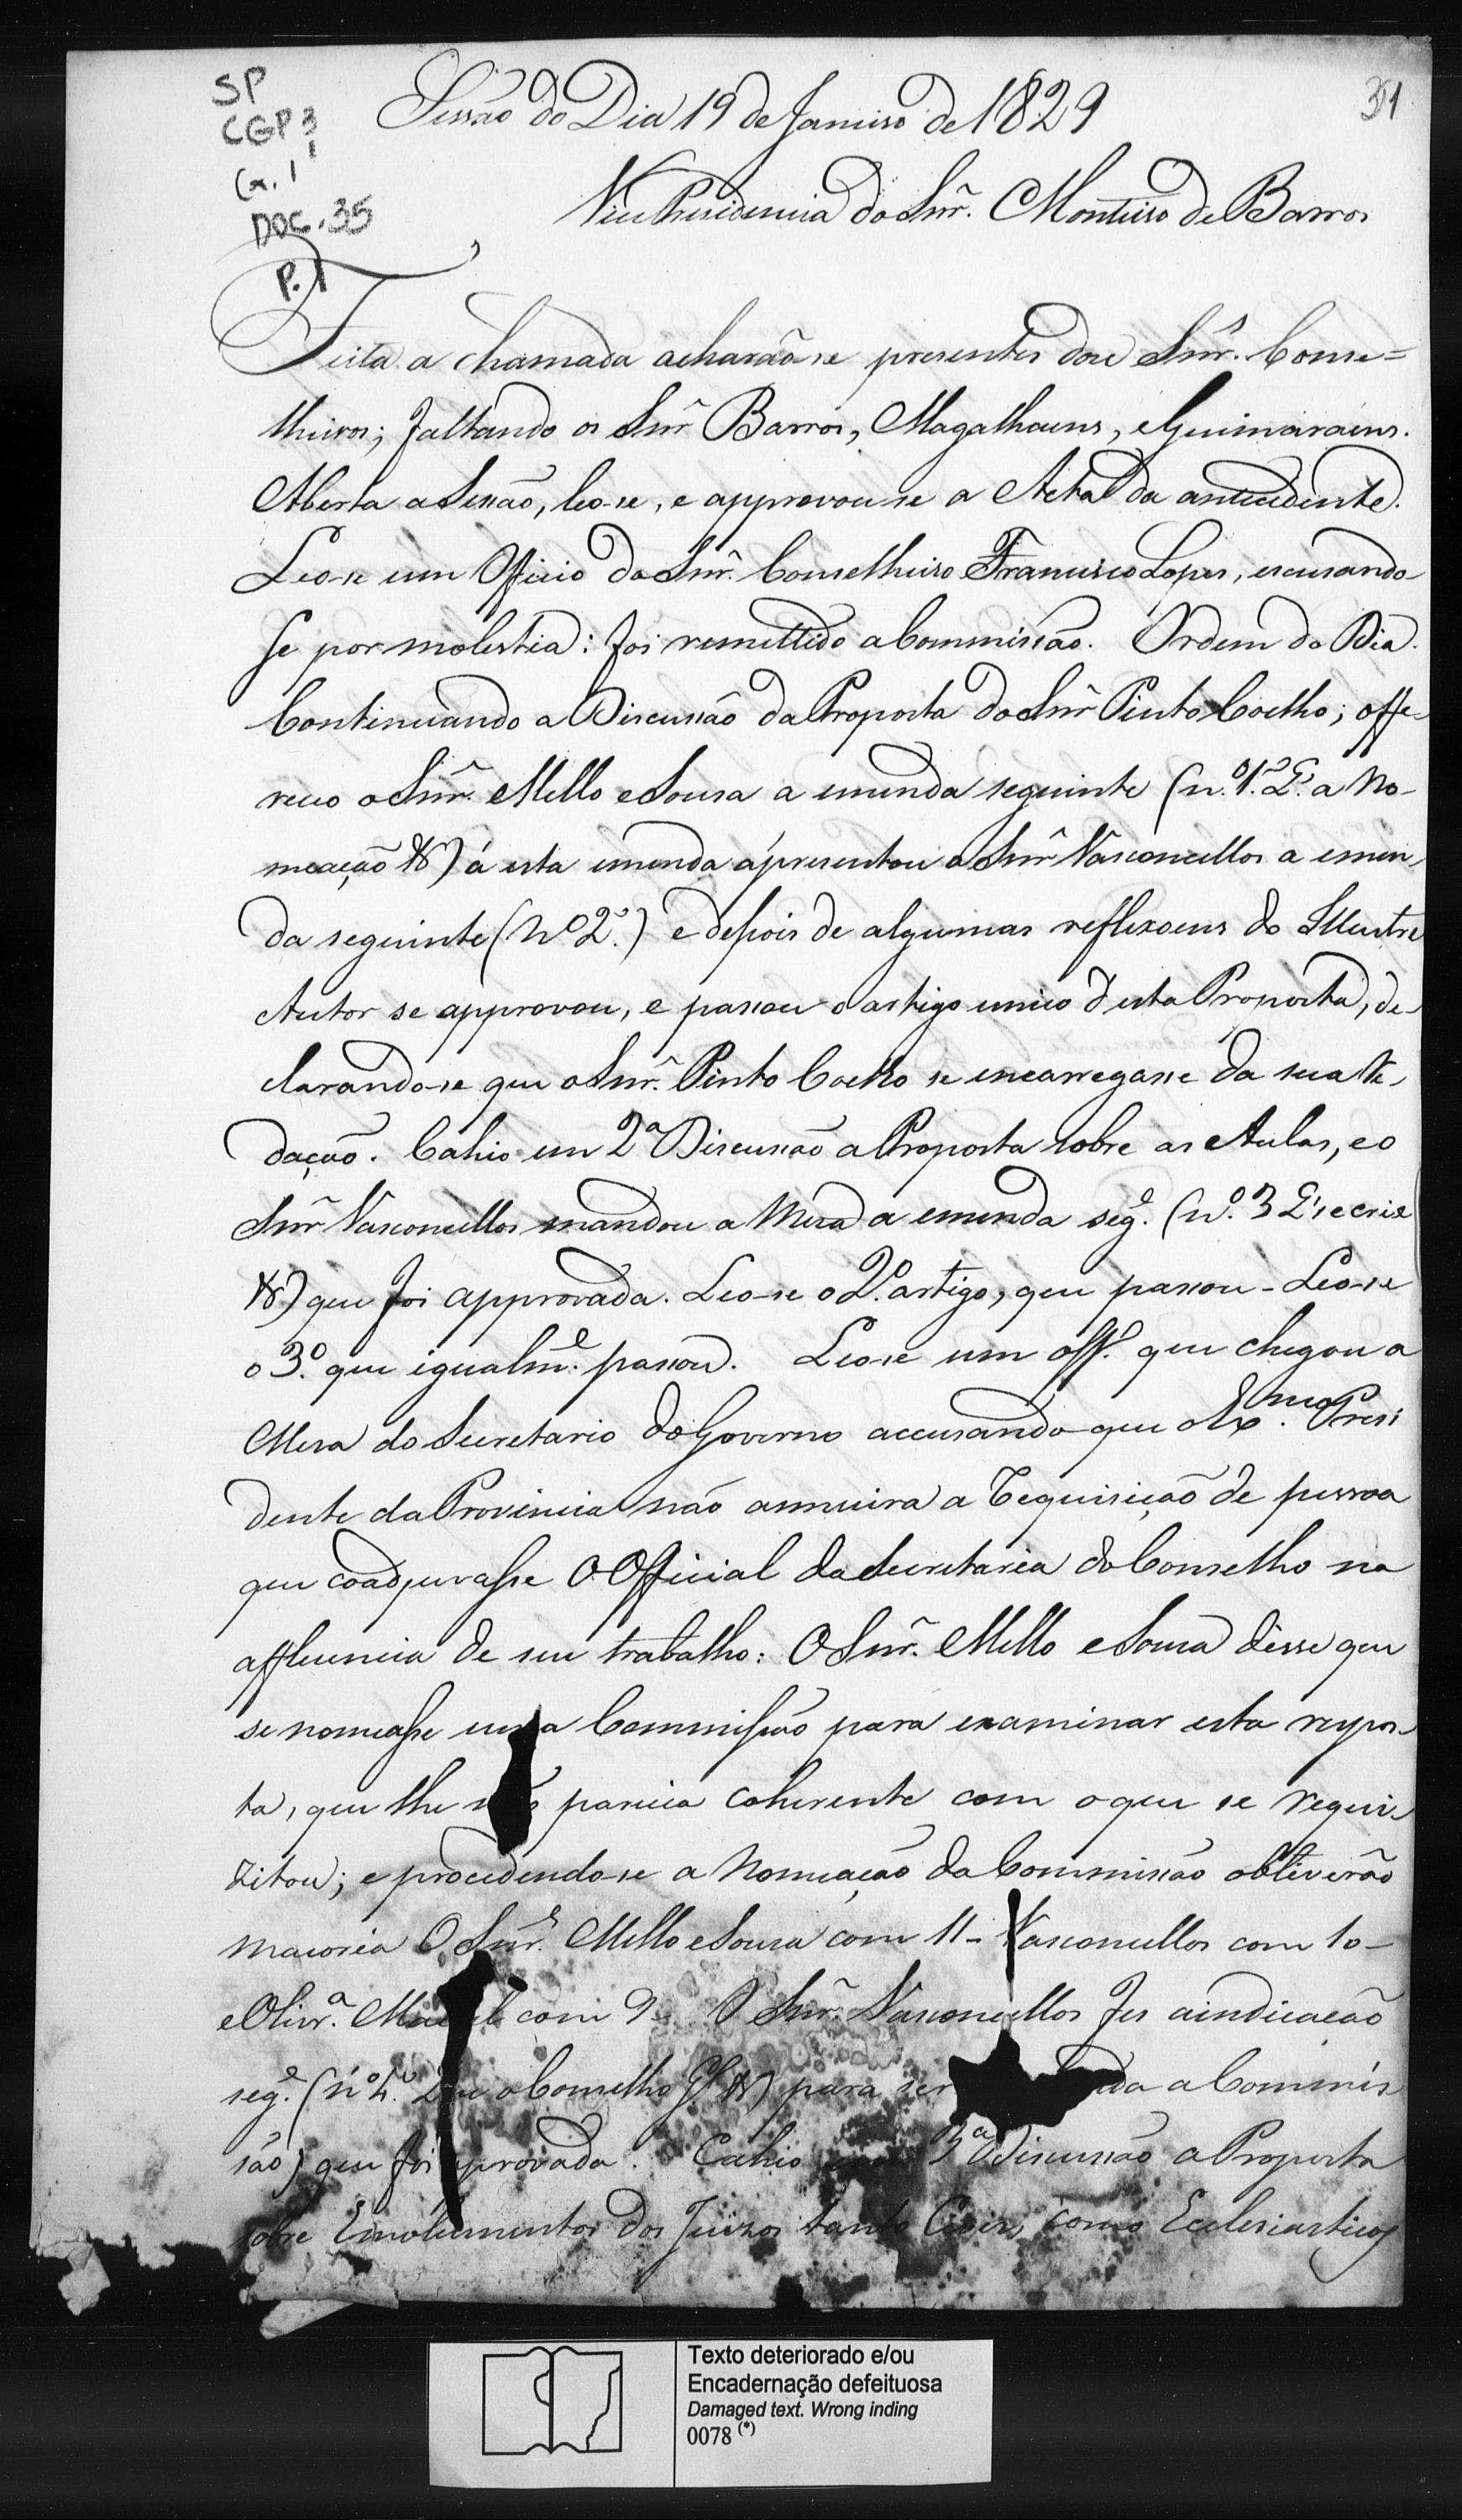 SP
CGP 3
Cx. 1
DOC. 35
P. 1
31
Sessão do Dia 19 de Janeiro de 1829
Vice Presidencia do Snr. Monteiro de Barros
Feita a chamada acharão-se presentes doze Snrs. Conse=
lheiros; faltando os Snrs Barros, Magalhaens, e Guimaraens.
Aberta a Sessão, leo-se, e approvou-se a Acta da antecedente.
Leo-se um Officio do Snr. Conselheiro Francisco Lopes, escusando-
se por molestia: foi remettido a Commissão. Ordem do Dia.
Continuando a Discussão da Proposta do Snr Pinto Coelho; offe-
receo o Snr. Mello e Sousa a emenda seguinte (n.º 1.º E' a no-
meação &) á esta emenda apresentou o Snr Vasconcellos a emen-
da seguinte (Nº 2º.) e depois de algumas reflexoens do Illustre
Autor se approvou, e passou o artigo unico d'esta Proposta, de-
clarando-se que o Snr. Pinto Coelho se encarregasse da sua Re-
dação. Cahio em 2ª Discussão a Proposta sobre as Aulas, e o
Snr Vasconcellos mandou a Meza a emenda seg.e (N.º 3 E' se crie
&) que foi approvada. Leo-se o 2º. artigo, que passou - Leo-se
o 3º. que igualm.e passou. Leo-se um off.º que chegou a
Mesa do Secretario do Governo accusando que o Ex.mo Presi
dente da Provincia não annuira a Requisição de pessoa
que coadjuvasse o Official da Secretaria do Conselho na
affluencia de seu trabalho: O Snr. Mello e Sousa disse que
se nomeasse uma Commissão para examinar esta respos-
ta, que lhe não parecia coherente com o que se requi-
zitou; e procedendo-se a Nomeação da Commissão obtiverão
maioria O Snr.s Mello e Sousa com 11 - Vasconcellos com 10 -
e Olivr.a Maciel com 9. O Snr. Vasconcellos fes a indicação
seg.e (nº 4.º Que o Conselho G.l &) para ser a Commis
são) que foi approvada. Cahio em 3ª Discussão a Proposta
sobre Emolumentos dos Juizos tanto Civis, como Ecclesiasticos
Texto deteriorado e/ou
Encadernação defeituosa
Damaged text. Wrong inding
0078 (*)